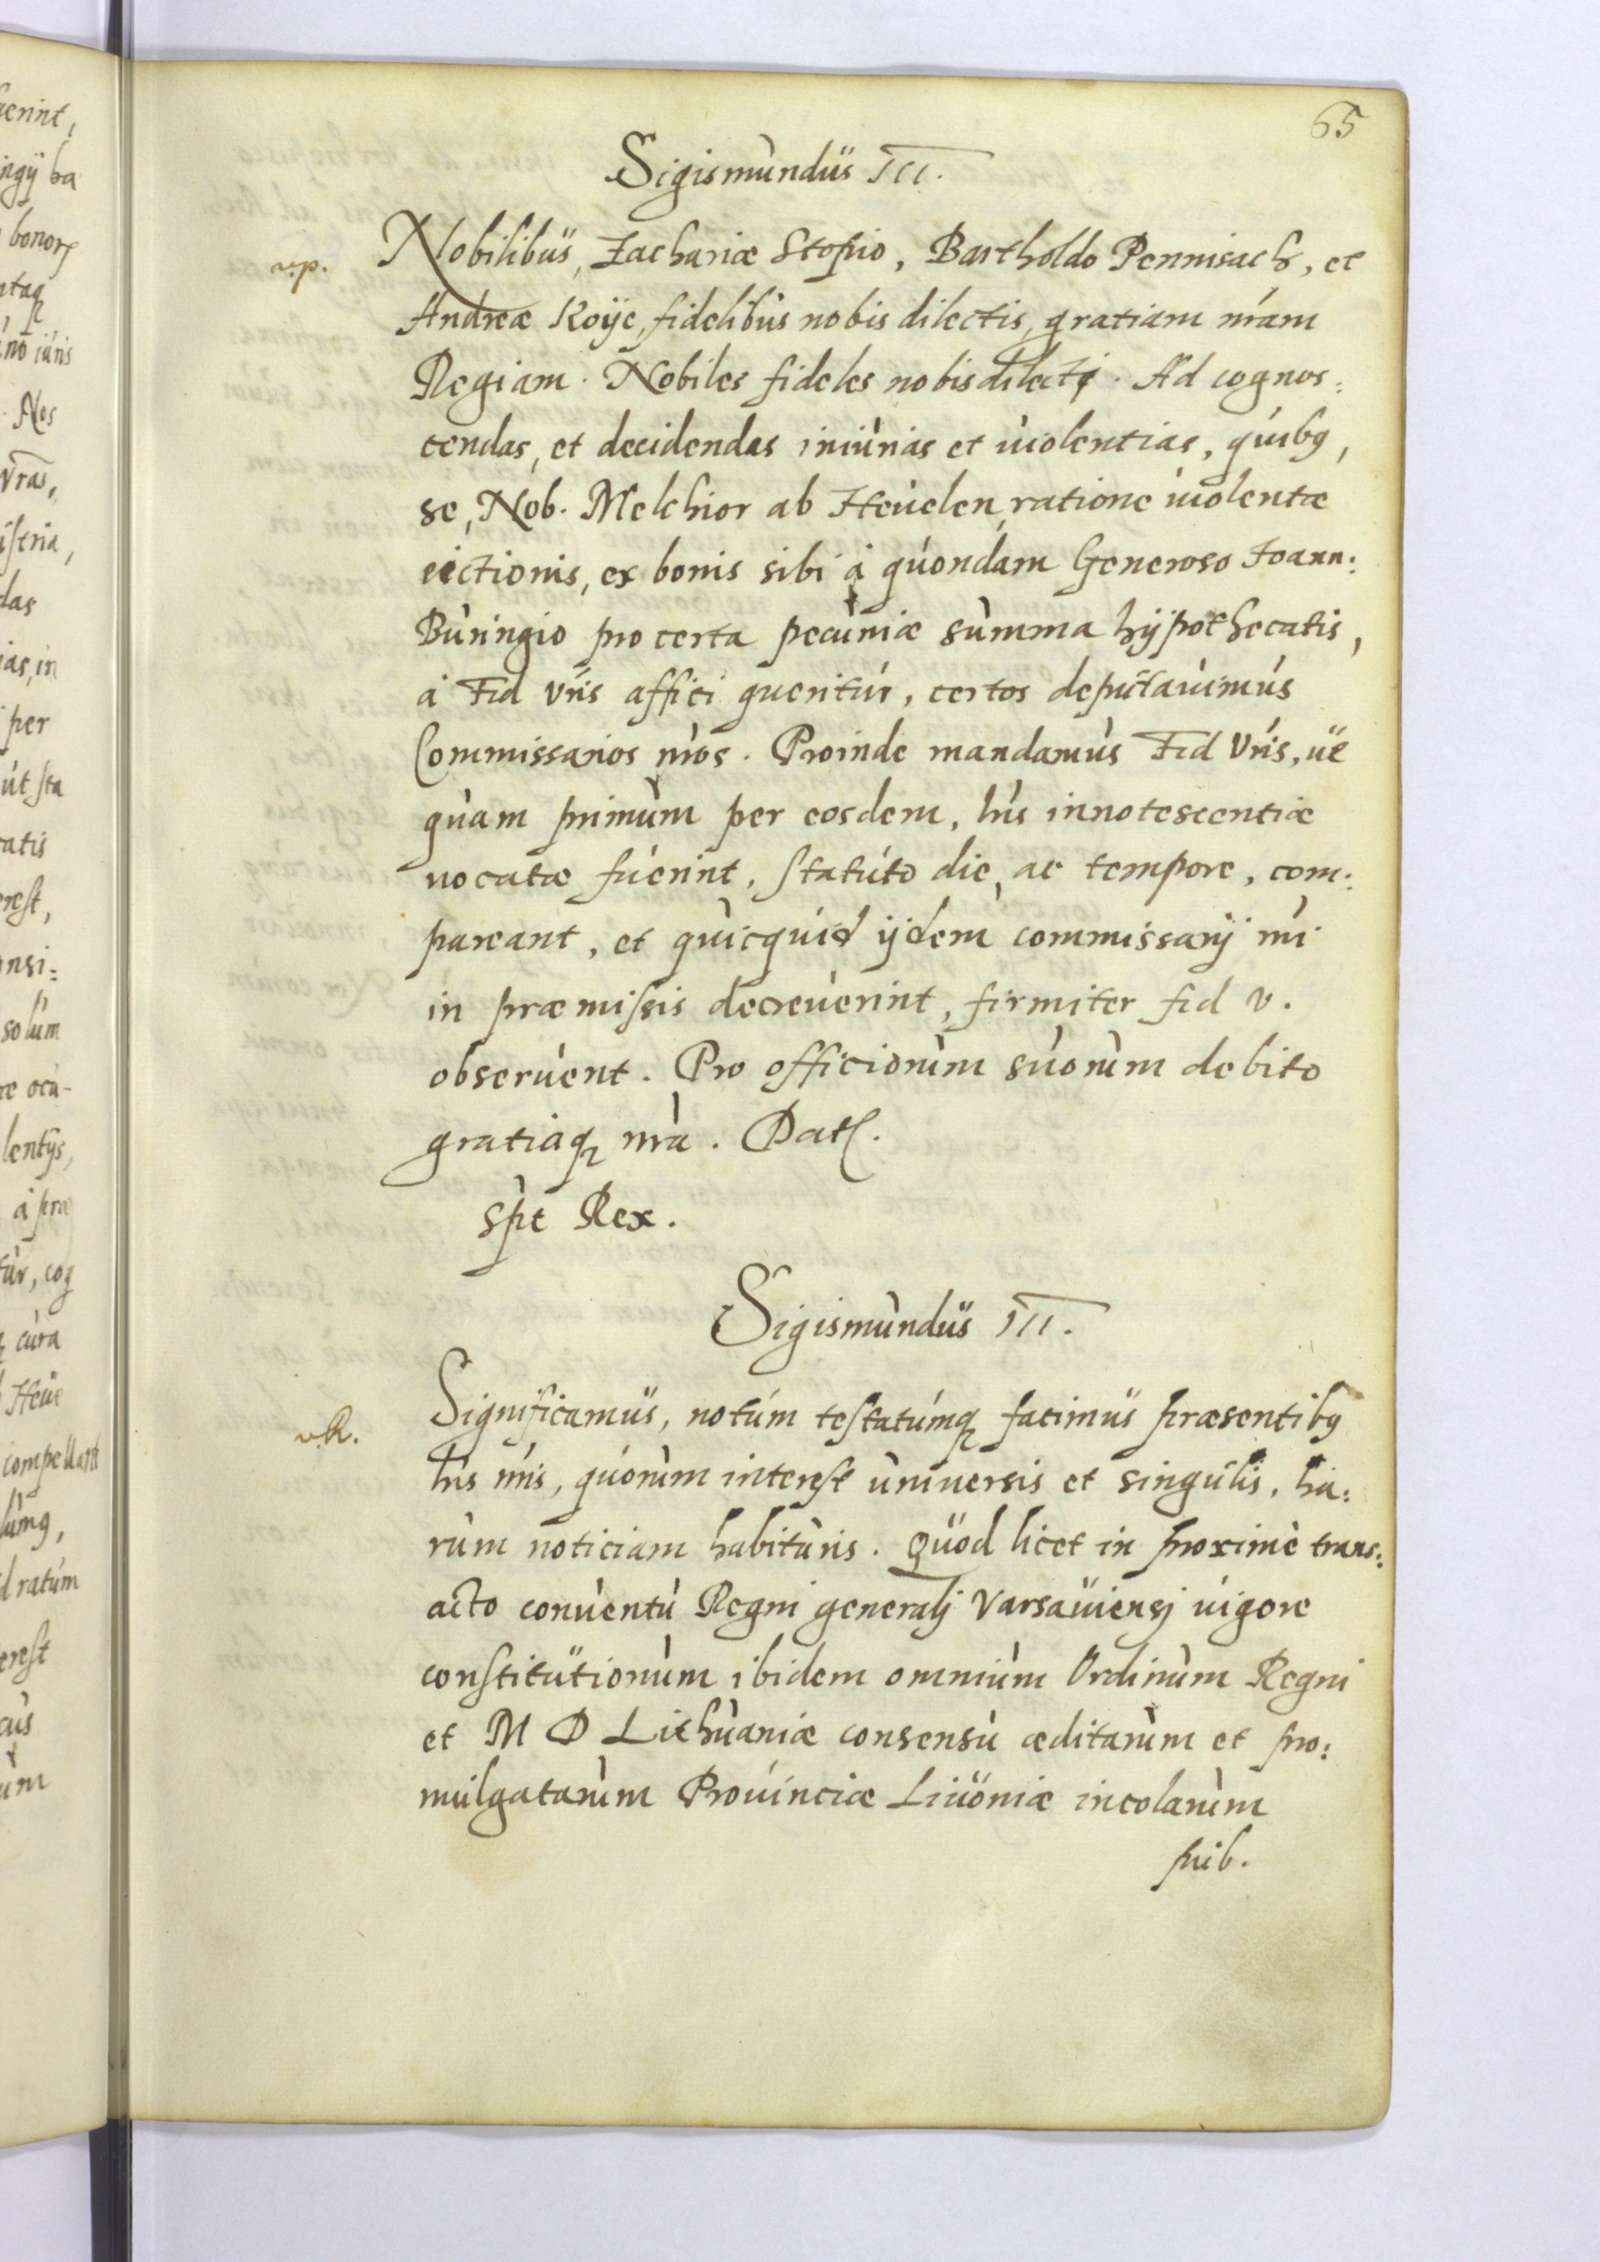 65
Sigismùndüs III.
v.p.
Nobilibüs, Zachariæ Stopio, Bartholdo Pennisach, et
Andreæ Koÿe, fidelibùs nobis dilectis, gratiam nr̃am
Regiam. Nobiles fideles nobis dilecti. Ad cognos:
cendas, et decidendas iniùrias et ùiolentias, qùibꝯ,
se, Nob. Melchior ab Heùelen, ratione ùiolentæ
eiectionis, ex bonis sibi à qùondam Generoso Joann:
Bùringio pro certa pecùniæ sùmma hÿpothecatis,
à Fid Vr̃is affici queritùr, certos depùtaùimùs
Commissarios nr̃os. Proinde mandamùs Fid Vr̃is, ùt
qùam primùm per eosdem, lr̃is innotescentiæ
uocatæ fùerint, statùto die, ac tempore, com:
pareant, et qùicqùid ijdem commissarij nr̃i
in præmissis decreùerint, firmiter fid v.
obserùent. Pro officiorùm sùorùm debito
gratiaqꝫ nr̃a. Datꝭ.
spt Rex.
Sigismùndüs III.
v.R.
Significamüs, notùm testatùmqꝫ facimüs præsentibꝯ
lr̃is nr̃is, qùorùm interest ùniuersis et singùlis, ha:
rùm noticiam habitùris. Qüod licet in proximè trans:
acto conùentù Regni generalj Varsaüiensj ùigore
constitütionùm ibidem omniùm Ordinùm Regni
et M D Lithùaniæ consensù æditarùm et pro:
mùlgatarùm Proùinciæ Liüoniæ incolarùm
pùb.
erint,
ingij ba
bonorꝭ
ntaqꝫ
iùris
Nos
Vr̃as,
istria,
das
ias, in
per
ùt sta
catis
erest,
onsi:
solùm
re ocù-
lentijs,
à præ
tùr, cog
cùra
Heùe
compellat
d ratùm
erest
ùm